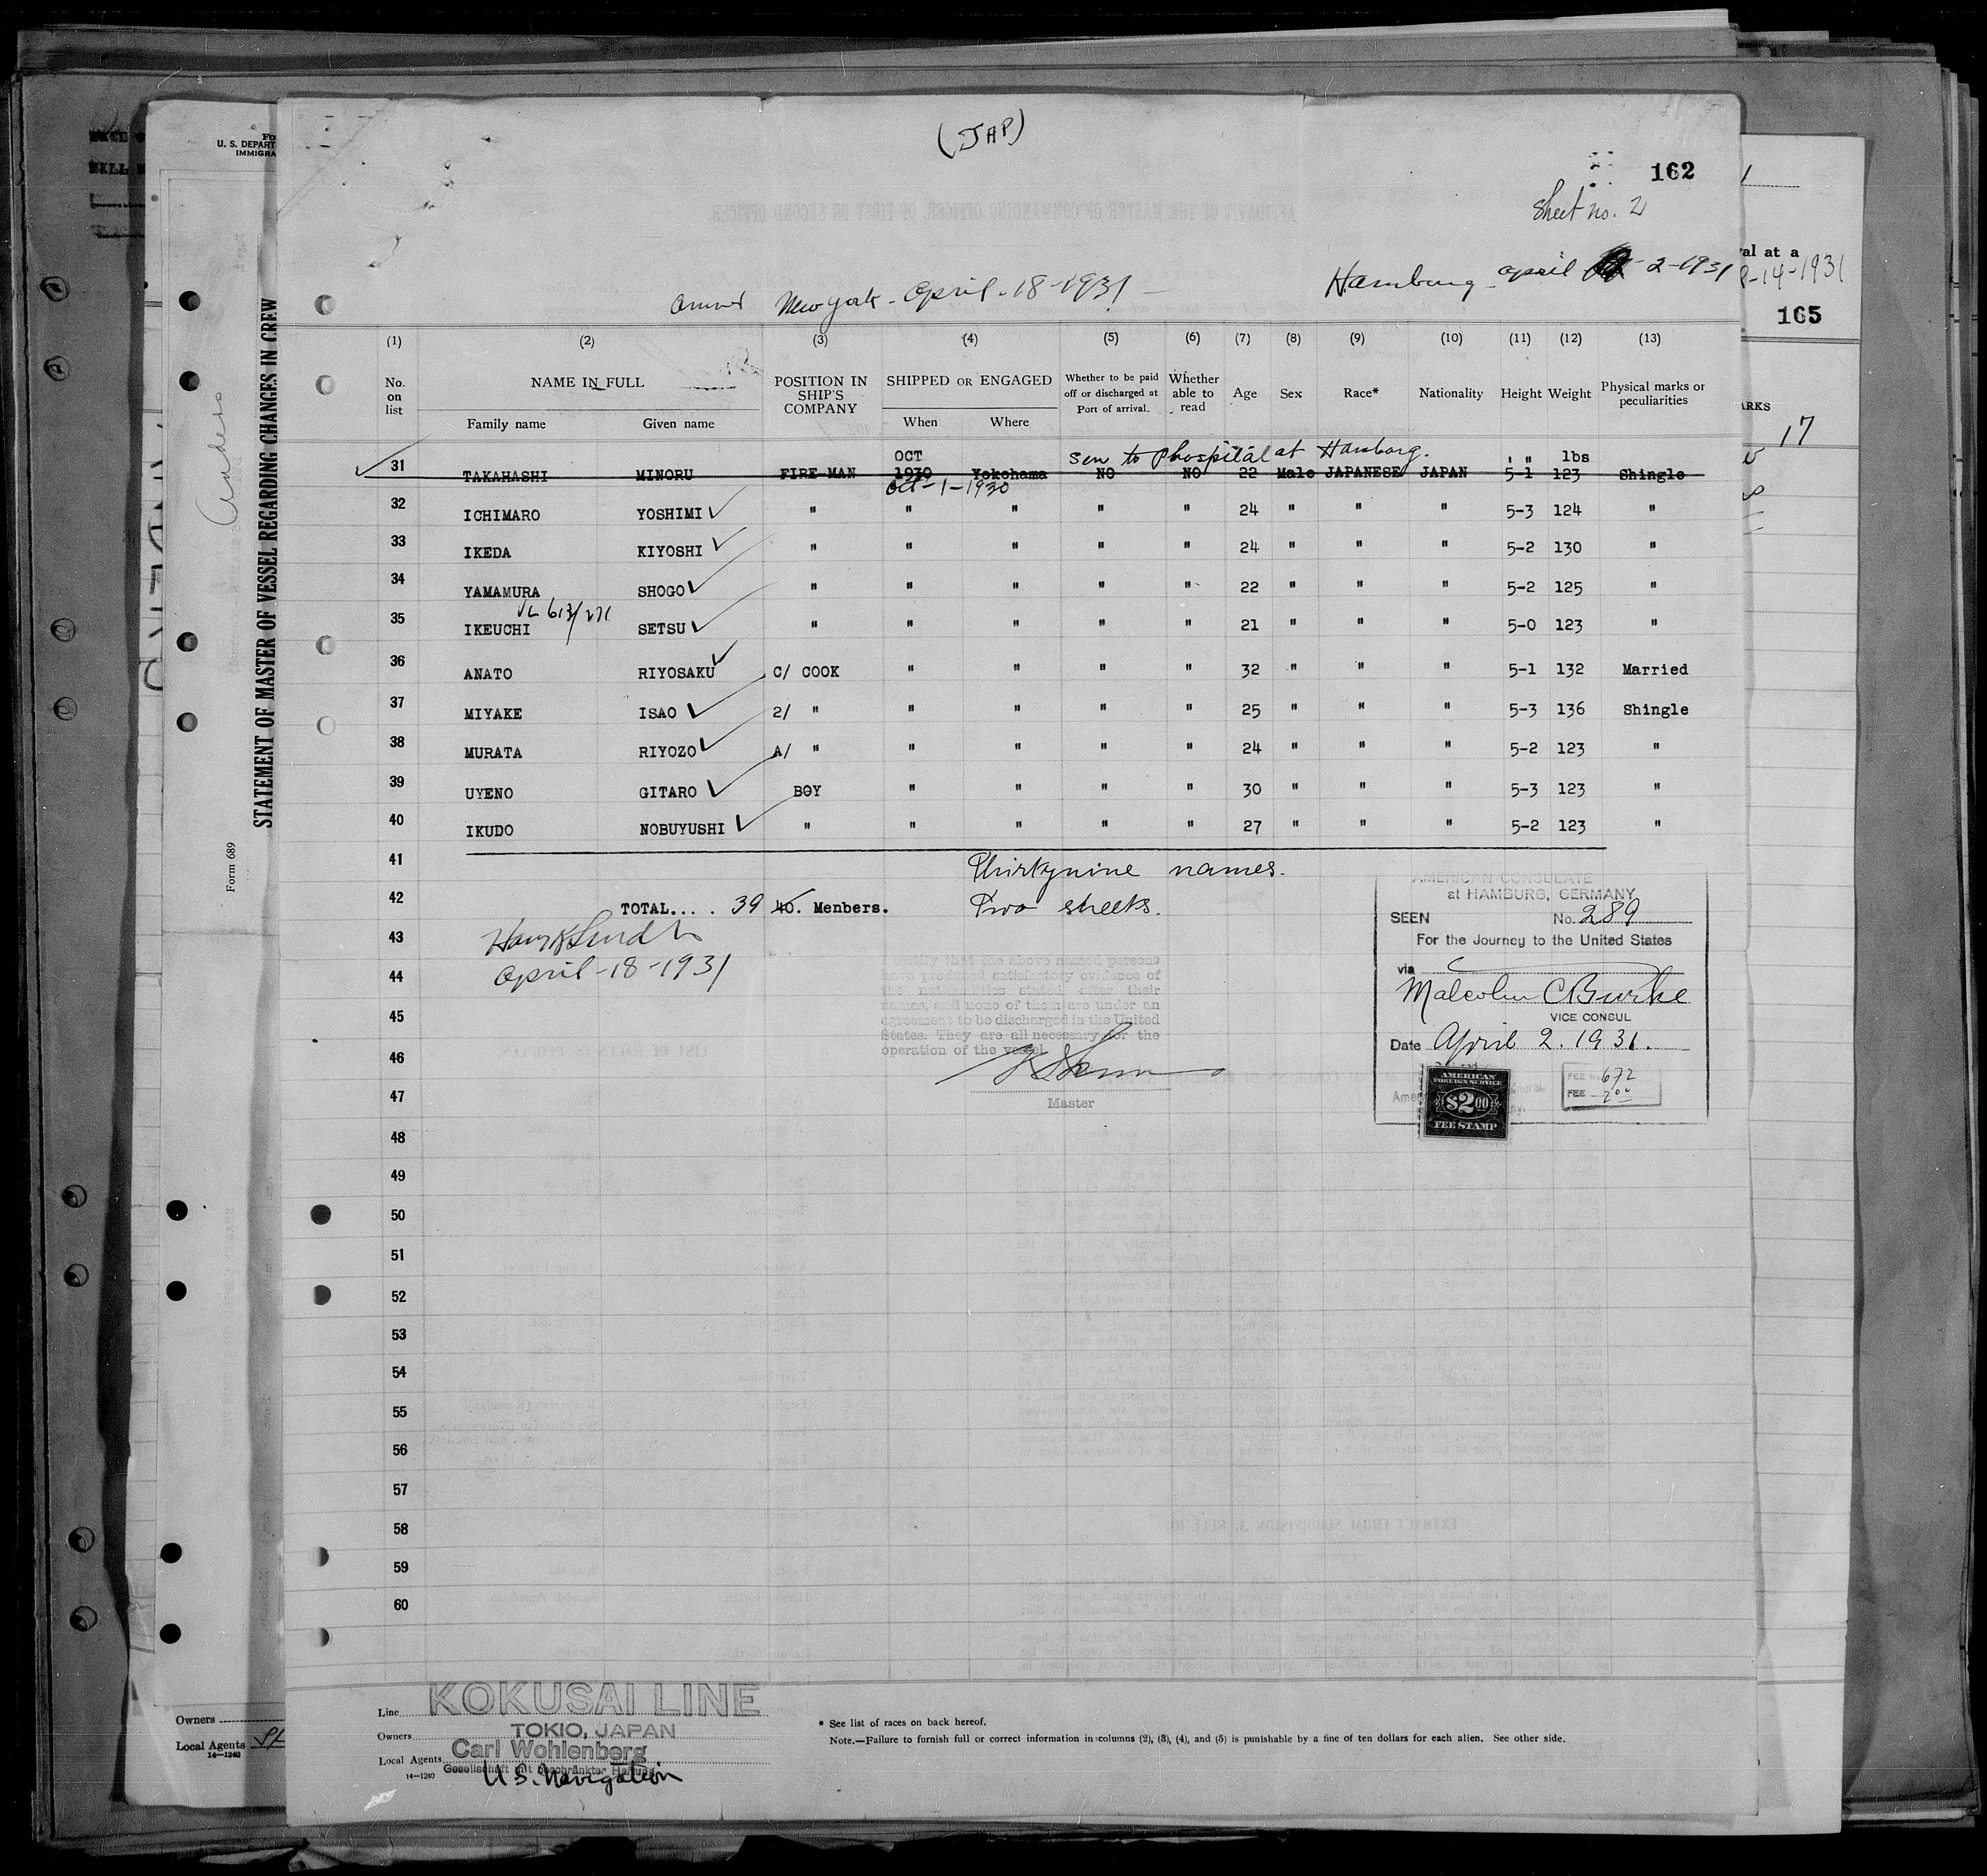 (JAP)
162
Sheet no. 2
New York - April - 18 - 1931
Hamburg - April 2 - 1931
(1) (2) (3) (4) (5) (6) (7) (8) (9) (10) (11) (12) (13)
No. on list
NAME IN FULL
Family name Given name
POSITION IN SHIP'S COMPANY
SHIPPED OR ENGAGED
When Where
Whether to be paid off or discharged at Port of arrival.
Whether able to read
Age
Sex
Race*
Nationality
Height
Weight
Physical marks or peculiarities
to hospital at Hamburg.
31 TAKAHASHI MINORU FIRE-MAN OCT 1930 Yokohama NO NO 22 Male JAPANESE JAPAN 5-1 lbs 123 Shingle
Oct-1-1930
32 ICHIMARO YOSHIMI " " " " " 24 " " " 5-3 124 "
33 IKEDA KIYOSHI " " " " " 24 " " " 5-2 130 "
34 YAMAMURA SHOGO " " " " " 22 " " " 5-2 125 "
35 IKEUCHI SETSU " " " " " 21 " " " 5-0 123 "
36 ANATO RIYOSAKU C/ COOK " " " " 32 " " " 5-1 132 Married
37 MIYAKE ISAO 2/ " " " " " 25 " " " 5-3 136 Shingle
38 MURATA RIYOZO A/ " " " " " 24 " " " 5-2 123 "
39 UYENO GITARO BOY " " " " 30 " " " 5-3 123 "
40 IKUDO NOBUYUSHI " " " " " 27 " " " 5-2 123 "
41 Thirtynine names.
42 TOTAL.... 39 40. Menbers. Two sheets.
43
44 April - 18 - 1931
45
46
47
48
49
50
51
52
53
54
55
56
57
58
59
60
certify that the above named persons
have produced satisfactory evidence of
the nationalities stated after their
names, and none of them are under an
agreement to be discharged in the United
States. They are all necessary for the
operation of the vessel.
Master
AMERICAN CONSULATE
at HAMBURG, GERMANY
SEEN No. 289
For the Journey to the United States
via
Malcolm C Burke
VICE CONSUL
Date April 2. 1931.
AMERICAN
FOREIGN SERVICE
$2.00
FEE STAMP
FEE 672
FEE 2.00
Line KOKUSAI LINE
Owners TOKIO, JAPAN
Local Agents Carl Wohlenberg
Gesellschaft mit beschränkter Haftung
14—1240 U.S. Navigation
* See list of races on back hereof.
Note.—Failure to furnish full or correct information in columns (2), (3), (4), and (5) is punishable by a fine of ten dollars for each alien. See other side.
U. S. DEPART
IMMIGRA
STATEMENT OF MASTER OF VESSEL REGARDING CHANGES IN CREW
Form 689
Owners
Local Agents
14—1240
val at a
-14-1931
165
ARKS
17